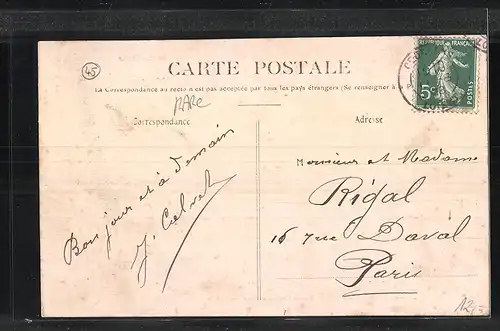 45
CARTE POSTALE
RÉPUBLIQUE FRANÇAISE
5c
POSTES
La Correspondance au recto n'est pas acceptée par tous les pays étrangers (Se renseigner à
RARE
Correspondance
Adresse
Bonjour et à demain
J. Calvet
Monsieur et Madame
Rigal
16 rue Daval
Paris
12.-